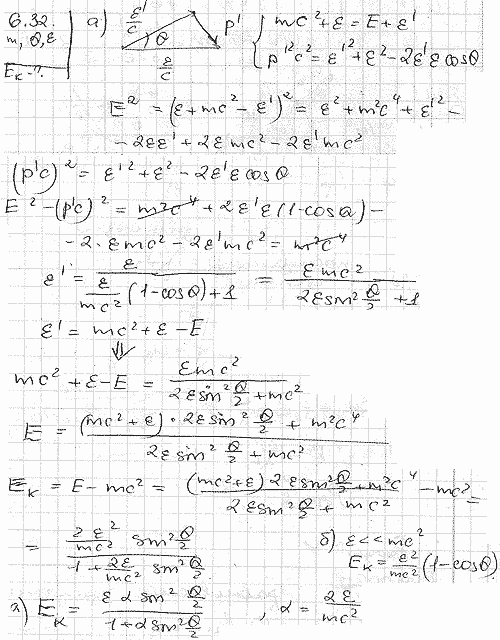 6.32.
m, θ, ε
E_K - ?
а) ε'/c θ p' ε/c
{ mc² + ε = E + ε'
p'²c² = ε'² + ε² - 2ε'ε cosθ
E² = (ε + mc² - ε')² = ε² + m²c⁴ + ε'² -
- 2εε' + 2εmc² - 2ε'mc²
(p'c)² = ε'² + ε² - 2ε'ε cosθ
E² - (p'c)² = m²c⁴ + 2ε'ε(1-cosθ) -
- 2·εmc² - 2ε'mc² = m²c⁴
ε' = ε / (ε/mc² (1-cosθ) + 1) = εmc² / (2ε sin² θ/2 + 1)
ε' = mc² + ε - E
⇓
mc² + ε - E = εmc² / (2ε sin² θ/2 + mc²)
E = ((mc² + ε) · 2ε sin² θ/2 + m²c⁴) / (2ε sin² θ/2 + mc²)
E_K = E - mc² = ((mc² + ε) 2ε sin² θ/2 + m²c⁴) / (2ε sin² θ/2 + mc²) - mc² =
= (2ε²/mc² sin² θ/2) / (1 + 2ε/mc² sin² θ/2)
б) ε << mc²
E_K = ε²/mc² (1-cosθ)
а) E_K = (ε α sin² θ/2) / (1 + α sin² θ/2) , α = 2ε/mc²